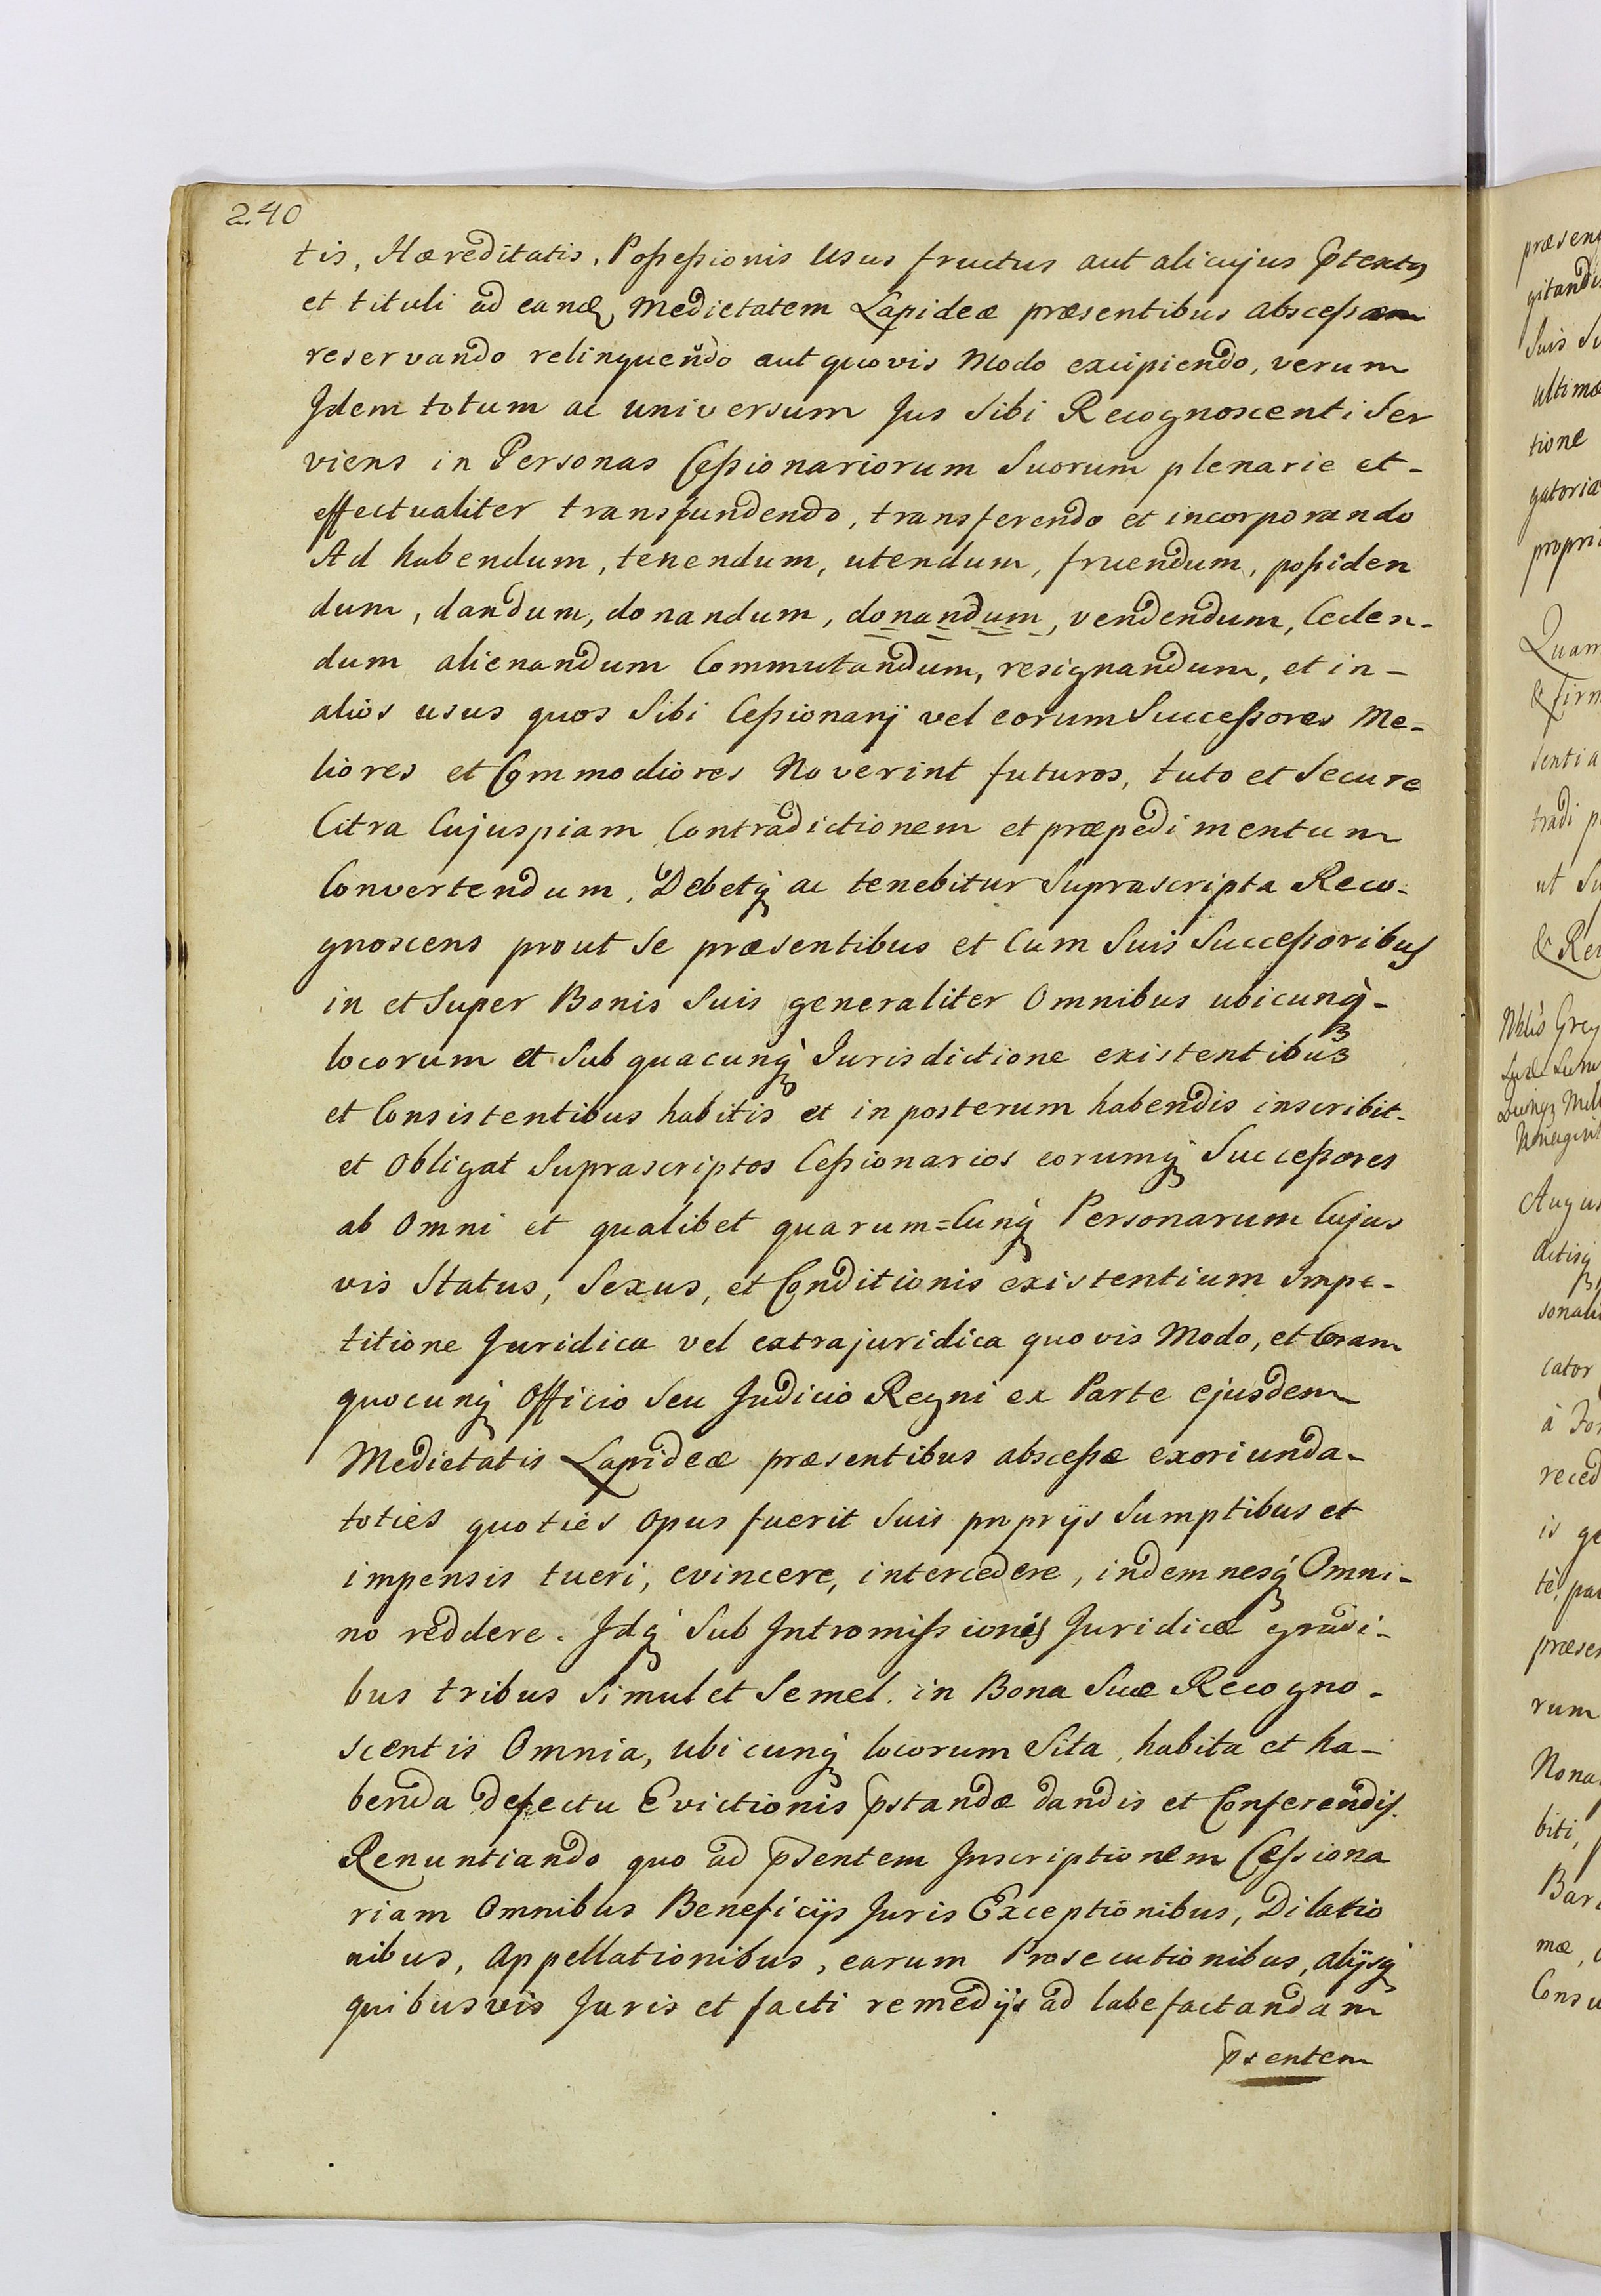 240
tis, Hæreditatis, Poßeßionis Usus fructus aut alicujus p̄textus
et tituli ad eandem Medietatem Lapideæ præsentibus abscessam
reservando relinquendo aut quovis Modo excipiendo, verum
Idem totum ac universum Jus Sibi Recognoscenti Ser
viens in Personas Ceßionariorum Suorum plenarie et-
effectualiter transfundendo, transferendo et incorporando
Ad habendum, tenendum, utendum, fruendum, poßiden
dum, dandum, donandum, donandum, vendendum, Ceden-
dum alienandum Commutandum, resignandum, et in-
alios usus quos Sibi Ceßionarij vel eorum Succeßores Me-
liores et Commodiores Noverint futuros, tuto et Secure
Citra Cujuspiam Contradictionem et præpedimentum
Convertendum. Debetq́ ac tenebitur Suprascripta Reco-
gnoscens prout Se præsentibus et Cum Suis Succeßoribus
in et Super Bonis Suis generaliter Omnibus ubicunq́-
locorum et Sub quacunq́ Jurisdictione existentibus
et Consistentibus habitis et in posterum habendis inscribit-
et Obligat Suprascriptos Ceßionarios eorumq́ Succeßores
ab Omni et qualibet quarum=Cunq́ Personarum Cujus
vis Status, Sexus, et Conditionis existentium Impe-
titione Juridica vel extrajuridica quovis Modo, et Coram
quocunq́ Officio Seu Judicio Regni ex Parte ejusdem
Medietatis Lapideæ præsentibus absceßæ exoriunda-
toties quoties Opus fuerit Suis proprijs Sumptibus et
impensis tueri, evincere, intercedere, indemnesq́ Omni-
no reddere. Idq́ Sub Intromißionis Juridicæ gradi-
bus tribus Simul et Semel. in Bona Suæ Recogno-
scentis Omnia, ubicunq́ locorum Sita, habita et ha-
benda defectu Evictionis p̄standæ dandis et Conferendis.
Renuntiando quo ad p̄sentem Inscriptionem Ceßiona
riam Omnibus Beneficijs Juris Exceptionibus, Dilatio
nibus, Appellationibus, earum Prosecutionibus, alijsq́
quibusvis Juris et facti remedijs ad labefactandam
p̄sentem